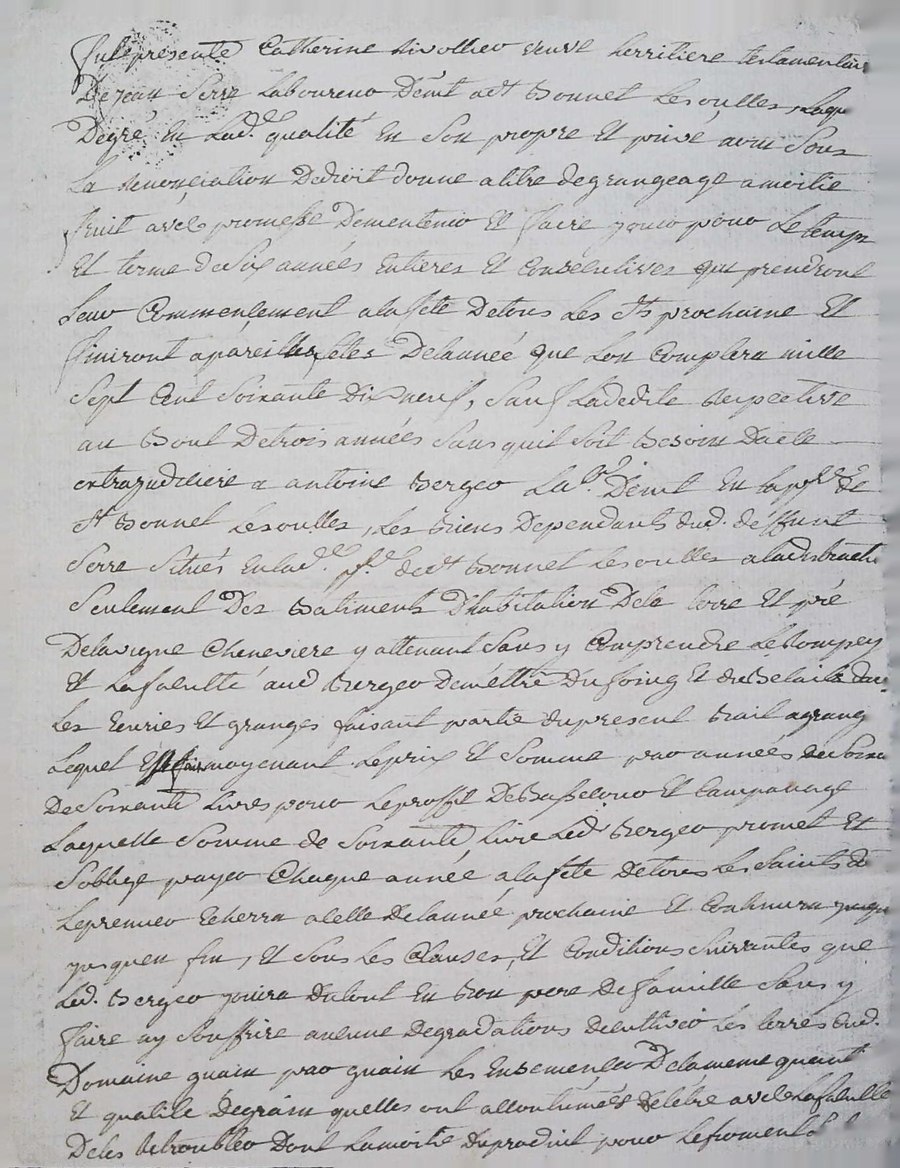 fut presente Catherine Rivollier veuve herritiere testamentaire
De jean Serre Laboureur Demt a St Bonnet Les oulles, Laqu
Degré En Lad.e qualité En Son propre Et privé avec Sous
La Renonciation Dedroit donne a titre degrangeage a moitie
fruit avec promesse Dementenir Et faire jouir pour Le temps
Et terme deSix années Entieres Et Consecutives qui prendront
Leur Commencement alafete Detous Les Sts prochaine Et
finiront a pareilles fetes Delannée que Lon Comptera mille
Sept Cent Soixante Dix neuf, Sauf Ladedite Respective
au Bout Detrois années Sans quil Soit Besoin Dacte
extrajudiciere a antoine Berger Lab.r Demt En lapsse de
St Bonnet Lesoulles, Les Biens Dependants dud. deffunt
Serre Situés Enlad.e psse de St Bonnet Lesoulles aladistraction
Seulement Des Batiments D'habitation Dela Cour Et pré
Delavigne Cheneviere y attenant Sans y Comprendre
Et Lafaculté aud Berger Demettre Dufoing Et
Les Ecuries Et granges faisant partie dupresent Bail agrang
Lequel Est fait moyenant Leprix Et Somme par années
De Soixante Livres pour Leproffit De Basse cour Et
Laquelle Somme de Soixante Livre Led Berger promet Et
Soblige payer Chaque année alafete Detous Les Saints dt
Lepremier Echerra acelle Delannée prochaine Et Continuera
jusquen fin, Et Sous Les Clauses Et Conditions Suivantes que
Led. Berger jouira Dutout En Bon pere De famille Sans y
faire ny Souffrire aucune Degradations decultiver Les terres dud.
Domaine guain par guain Les Ensemencer Delameme quantit
Et qualité Degrain quelles ont accoutumés Delêtre avec Lafaculté
Deles Retroubler Dont Lamoitie Duproduit pour Lefroment